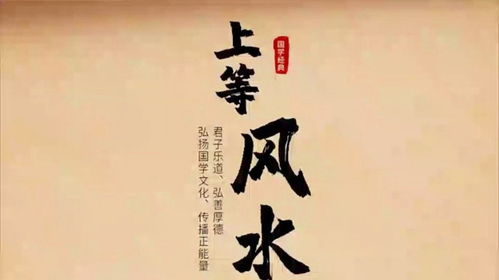 国学经典
上等
风水
君子乐道、弘善厚德
弘扬国学文化、传播正能量